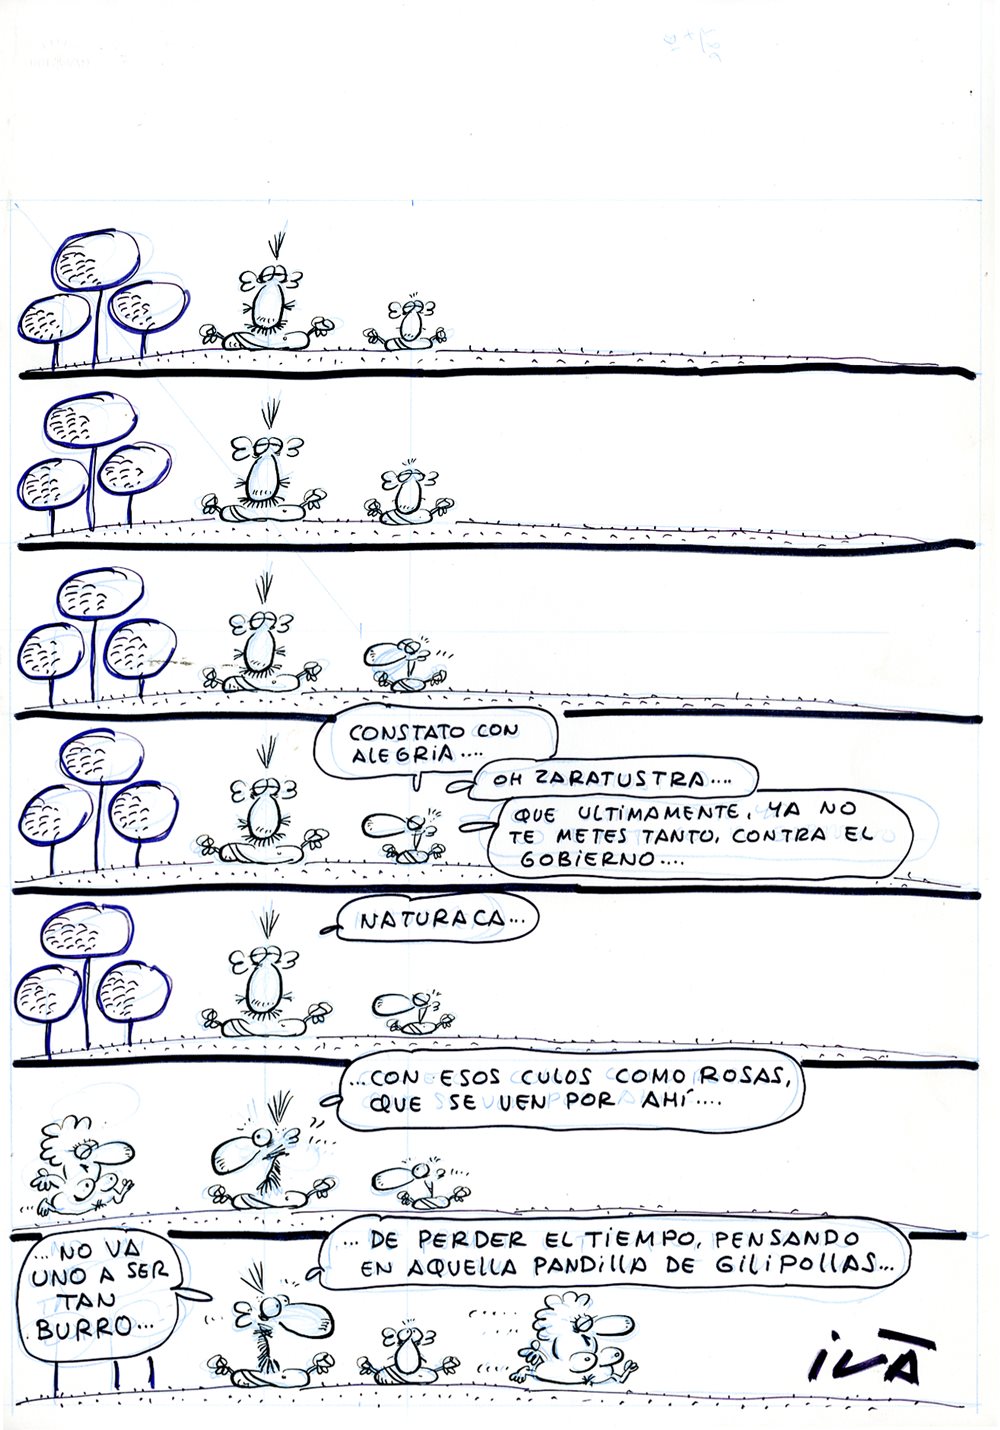 CONSTATO CON
ALEGRiA....
OH ZARATUSTRA....
QUE ULTiMAMENTE, YA NO
TE METES TANTO, CONTRA EL
GOBiERNO....
NATURACA...
...CON ESOS CULOS COMO ROSAS,
QUE SE VEN POR AHÍ....
...NO VA
UNO A SER
TAN
BURRO...
... DE PERDER EL TiEMPO, PENSANDO
EN AQUELLA PANDiLLA DE GiLiPOLLAS...
iVÀ